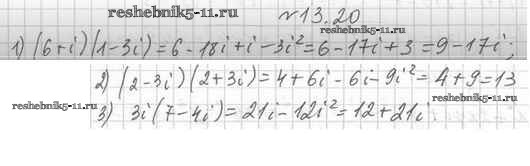 reshebnik5-11.ru
№13.20
reshebnik5-11.ru
1) (6+i)(1-3i)=6-18i+i-3i²=6-17i+3=9-17i;
2) (2-3i)(2+3i)=4+6i-6i-9i²=4+9=13
reshebnik5-11.ru
reshebnik5-11.ru
3) 3i(7-4i)=21i-12i²=12+21i